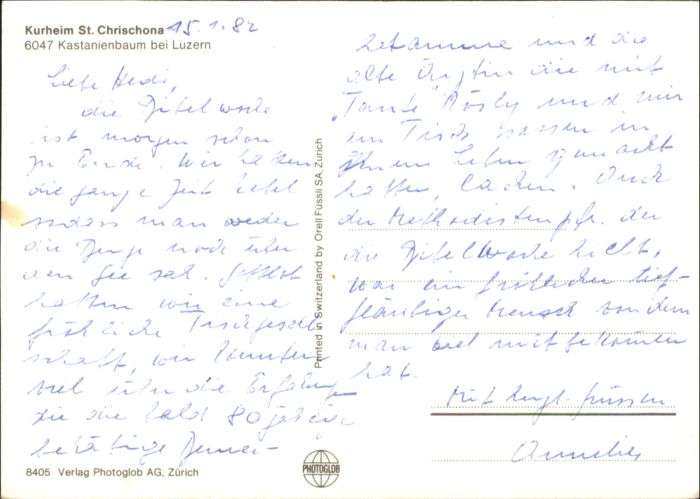 Kurheim St. Chrischona 15.1.82
6047 Kastanienbaum bei Luzern
Liebe Hedi,
die Bibelwoche
ist morgen schon
zu Ende. Wir hatten
die ganze Zeit Nebel
sodass man weder
die Berge noch über
den See sah.
hatten wir eine
fröhliche Tischgesell
schaft, wir konnten
viel über die
die die bald 80 jährige
Gemei-
Hebamme und die
alte Ärztin die mit
"Tante" Rösly und mir
am Tisch sassen in
ihrem Leben gemacht
hatten, lachen. Auch
der Methodistenpfr. der
die Bibelwoche hielt,
war ein fröhlicher tief-
gläubiger Mensch von dem
man viel mitbekommen
hat.
Mit herzl. Grüssen
Annelies
Printed in Switzerland by Orell Füssli SA, Zürich
8405 Verlag Photoglob AG, Zürich
PHOTOGLOB